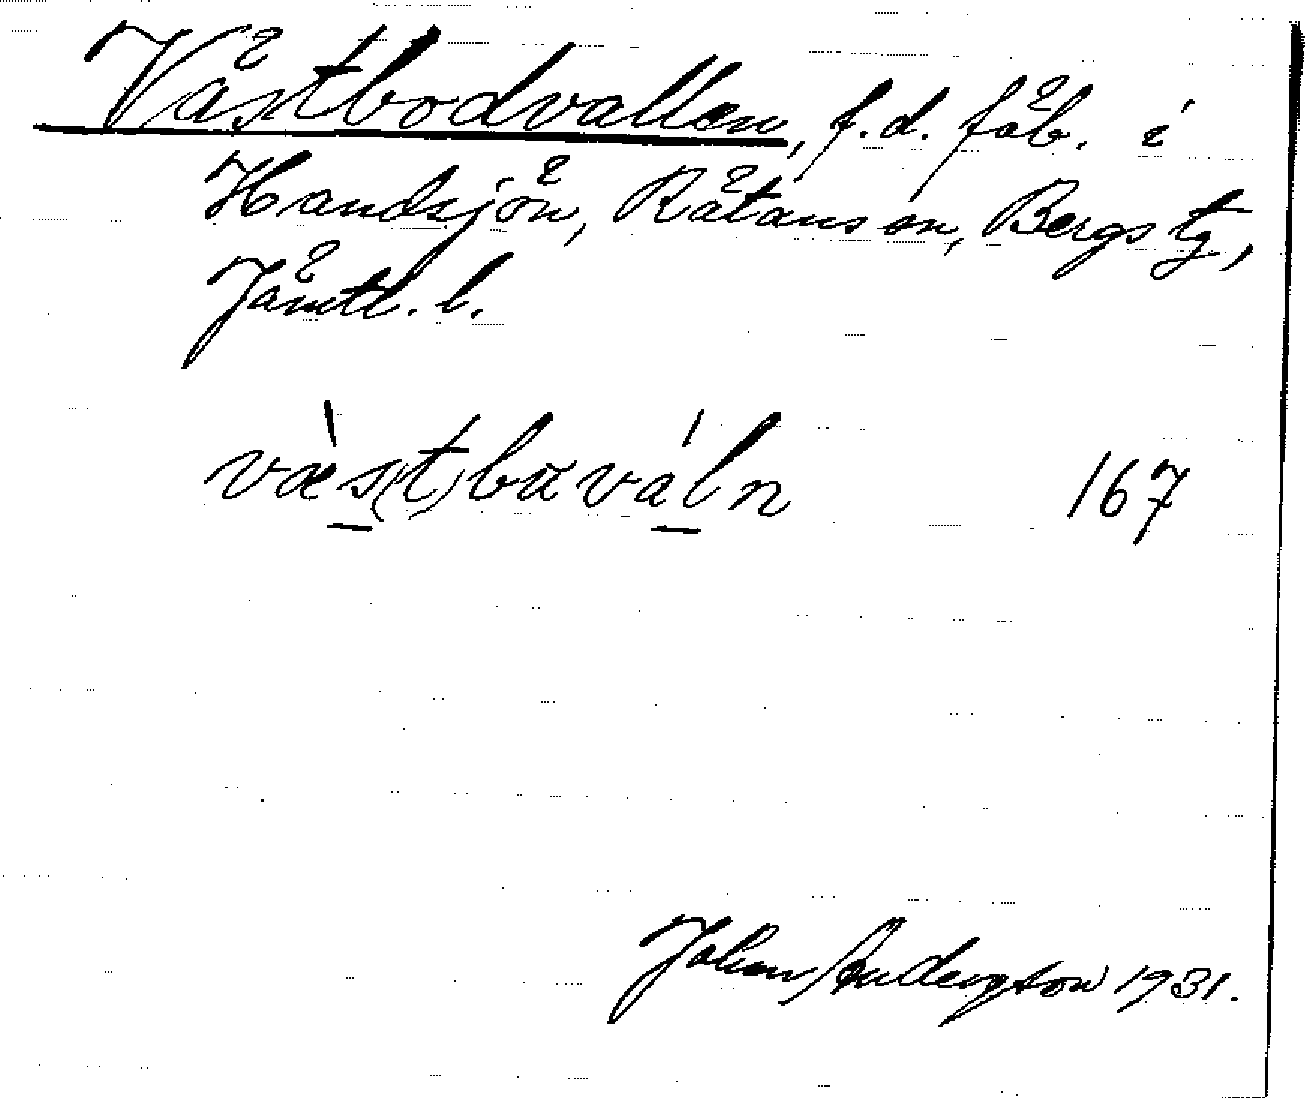 Västbodvallen, f.d. fäb. i
Handsjön, Rätans sn, Bergs tg,
Jämtl. l.
væ̀s(t)bαváln 167
Johan Anderzson 1931.